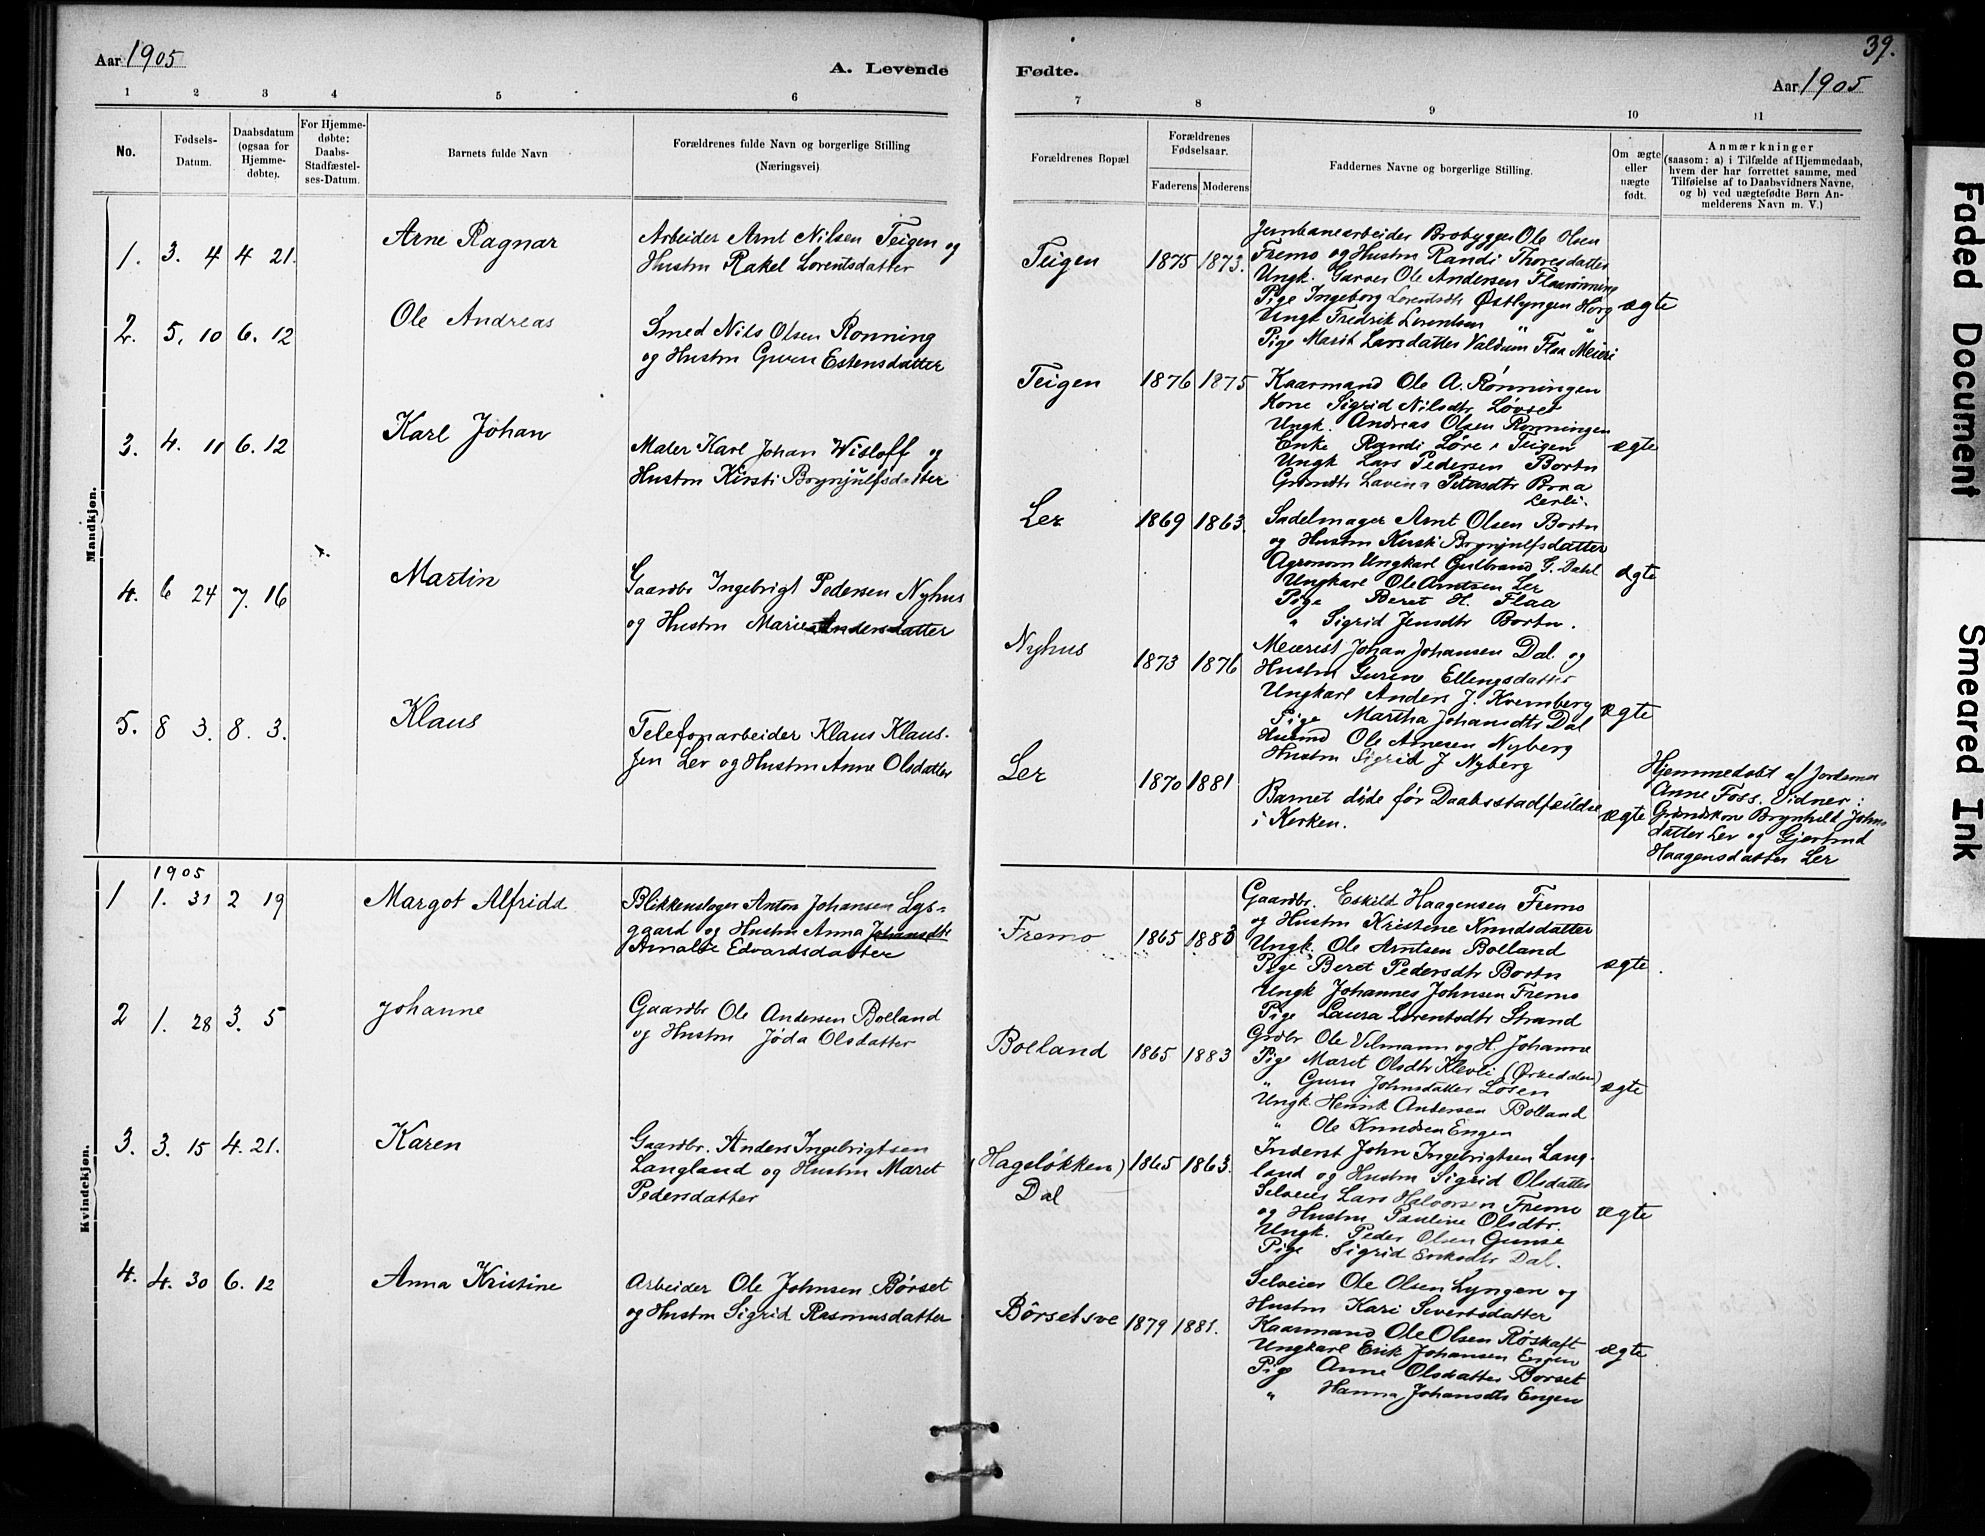 Aar 1905
A. Levende
1 2 3 4 5 6
No.
Fødsels-
Datum.
Daabsdatum
(ogsaa for
Hjemme-
døbte).
For Hjemme-
døbte:
Daabs-
Stadfæstel-
ses-Datum.
Barnets fulde Navn
Forældrenes fulde Navn og borgerlige Stilling
(Næringsvei)
Mandkjøn.
1. 3. 4 4 21. Arne Ragnar
Arbeider Arnt Nilsen Teigen og
Hustru Rakel Lorentsdatter
2. 5. 10 6. 12 Ole Andreas
Smed Nils Olsen Rønning
og Hustru Guren Estensdatter
3. 4. 11 6. 12 Karl Johan
Maler Karl Johan Wisløff og
Hustru Kirsti Brynjulfsdatter
4. 6 24 7. 16 Martin
Gaardbr Ingebrigt Pedersen Nyhus
og Hustru Marie Andersdatter
5. 8 3. 8. 3. Klaus
Telefonarbeider Klaus Klaus-
sen Ler og Hustru Anne Olsdatter
Kvindekjøn.
1905
1 1. 31 2 19 Margot Alfrida
Blikkenslager Anton Johansen Lys-
gaard og Hustru Anna Johansdtr
Amalie Edvardsdatter
2 1. 28 3. 5 Johanne
Gaardbr Ole Andersen Bolland
og Hustru Jøda Olsdatter
3. 3. 15 4. 21. Karen
Gaardbr. Anders Ingebrigtsen
Langland og Hustru Maret
Pedersdatter
4. 4. 30 6. 12 Anna Kristine
Arbeider Ole Johnsen Børset
og Hustru Sigrid Rasmusdatter
Fødte.
39.
Aar 1905
7 8 9 10 11
Forældrenes Bopæl
Forældrenes
Fødselsaar.
Faderens Moderens
Faddernes Navne og borgerlige Stilling.
Om ægte
eller
uægte
født.
Anmærkninger
(saasom: a) i Tilfælde af Hjemmedaab,
hvem der har forrettet samme, med
Tilføielse af to Daabsvidners Navne,
og b) ved uægtefødte Børn An-
melderens Navn m. V.)
Teigen 1875 1873. ægte
Jernbanearbeider Brobygger Ole Olsen
Fremo og Hustru Randi Thoresdatter
Ungk. Garver Ole Andersen Flaarønning
Pige Ingeborg Lorentsdtr Østlyngen Horg
Ungk Fredrik Lorentsen " "
Pige Marit Larsdatter Valdum Flaa Meieri
Teigen 1876 1875 ægte
Kaarmand Ole A. Rønningen
Kone Sigrid Nilsdtr Løvset
Ungk. Andreas Olsen Rønningen
Enke Randi Løre i Teigen
Ungk Lars Pedersen Bortn
Lavina Petersdtr Braa
Lerli.
Ler 1869 1863. ægte
Sadelmager Arnt Olsen Bortn
og Hustru Kirsti Brynjulfsdatter
Agronom Ungkarl Gulbrand G. Dahl
Ungkarl Ole Arntsen Ler
Pige Beret H. Flaa
" Sigrid Jensdtr Bortn.
Nyhus 1873 1876 ægte
Meierist Johan Johansen Dal og
Hustru Gurine Ellingsdatter
Ungkarl Anders J. Kvernberg
Pige Martha Johansdtr Dal
Husmd Ole Arnesen Nyberg
Hustru Sigrid J Nyberg
Ler 1870 1881 ægte
Barnet døde før Daabsstadfæstelse
i Kirken.
Hjemmedøbt af Jordemor
Anne Foss. Vidner:
Grdmdskone Brynhild Johns-
datter Ler og Gjertrud
Haagensdatter Ler
Fremo 1865 1883 ægte.
Gaardbr. Eskild Haagensen Fremo
og Hustru Kristine Knudsdatter
Ungk. Ole Arntsen Bolland
Pige Beret Pedersdtr Bortn
Ungk Johannes Johnsen Fremo
Pige Laura Lorentsdtr Strand
Bolland 1865 1883 ægte
Grdbr Ole Vilmann og H. Johanne
Pige Maret Olsdtr Klevli (Ørkedalen)
" Guru Johnsdatter Løsen
Ungk. Henrik Andersen Bolland
" Ole Knudsen Engen
(Hageløkken) 1865 1863. ægte
Dal
Inderst John Ingebrigtsen Lang-
land og Hustru Sigrid Olsdatter
Selveier Lars Halvorsen Fremo
og Hustru Pauline Olsdtr.
Ungk. Peder Olsen Gunse
Pige Sigrid Eriksdtr Dal.
Børsetsve 1879 1881. ægte
Selveier Ole Olsen Lyngen og
Hustru Kari Sivertsdatter
Kaarmand Ole Olsen Røskaft
Ungkarl Erik Johansen Engen
Pige Anne Olsdatter Børset
" Hanna Johansdtr Engen
Faded Document
Smeared Ink